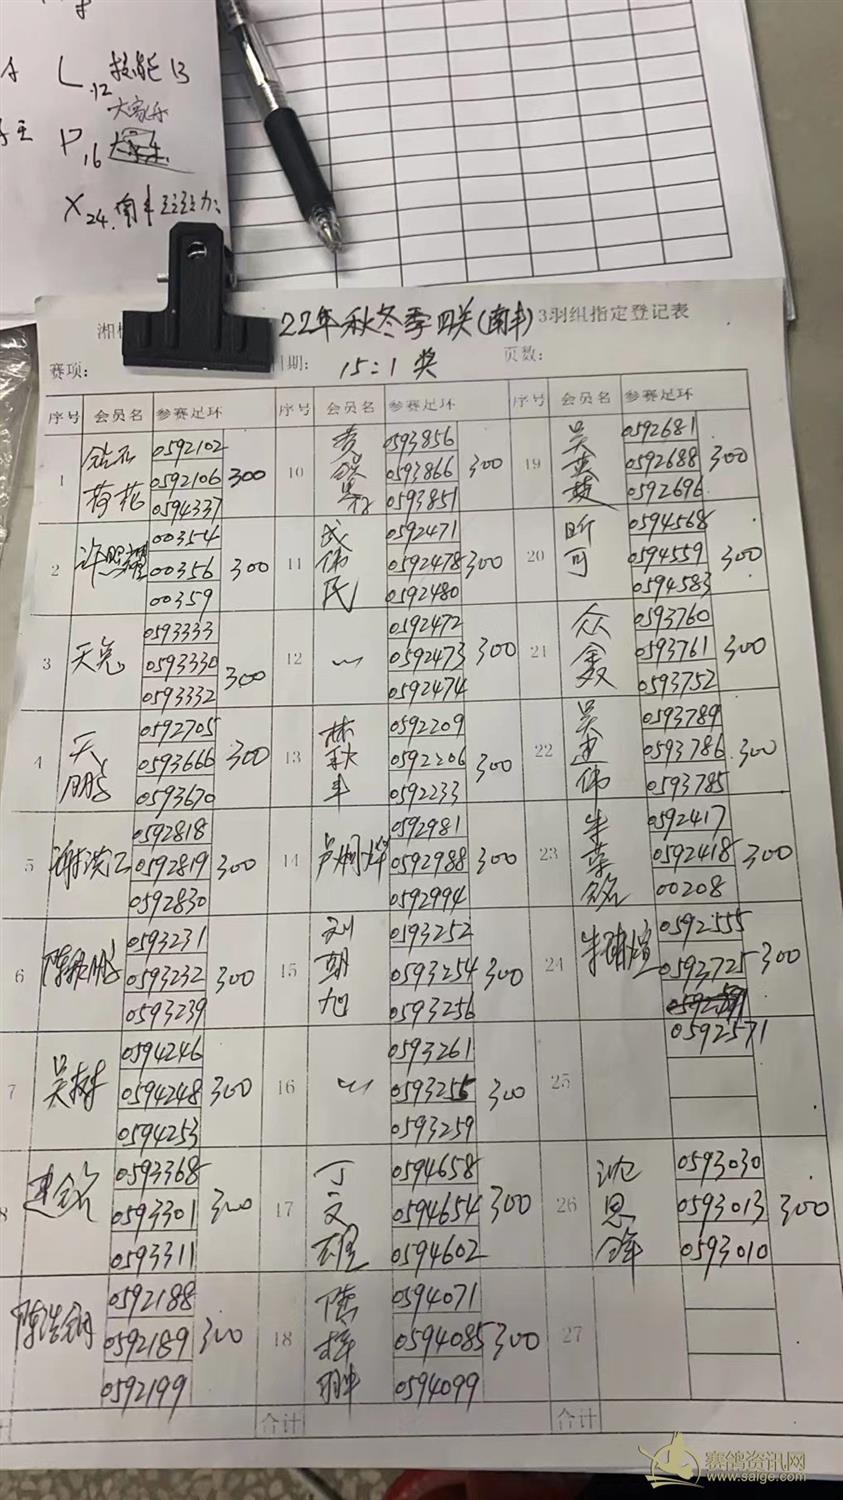 L.12 技能13
大家乐
P.16
X24.南丰
22年秋冬季四关(南丰)3羽组指定登记表
赛项: 日期: 15:1奖 页数:
序号 会员名 参赛足环 序号 会员名 参赛足环 序号 会员名 参赛足环
1 钻石荷花 0592102 0592106 0594337 300
2 许照耀 00354 00356 00359 300
3 天兔 0593333 0593330 0593332 300
4 天鹏 0592705 0593666 0593670 300
5 谢洪江 0592818 0592819 0592830 300
6 0593231 0593232 0593239 300
7 0594246 0594248 0594253 300
8 建铭 0593368 0593301 0593311 300
陈浩钢 0592188 0592189 0592199 300
计
10 0593856 0593866 0593851 300
11 武伟民 0592471 0592478 0592480 300
12 〃 0592472 0592473 0592474 300
13 林秋丰 0592209 0592206 0592233 300
14 0592981 0592988 0592994 300
15 刘朝旭 0193252 0593254 0593256 300
16 〃 0593261 0593255 0593259 300
17 丁文雄 0594658 0594654 0594602 300
18 0594071 0594085 0594099 300
合计
19 0592681 0592688 0592696 300
20 昕可 0594568 0594559 0594583 300
21 众鑫 0593760 0593761 0593752 300
22 吴建伟 0593789 0593786 0593785 300
23 朱荣铭 0592417 0592418 00208 300
24 0592555 0592725 300
25 0592571
26 沈思锋 0593030 0593013 0593010 300
27
合计
赛鸽资讯网
www.saige.com